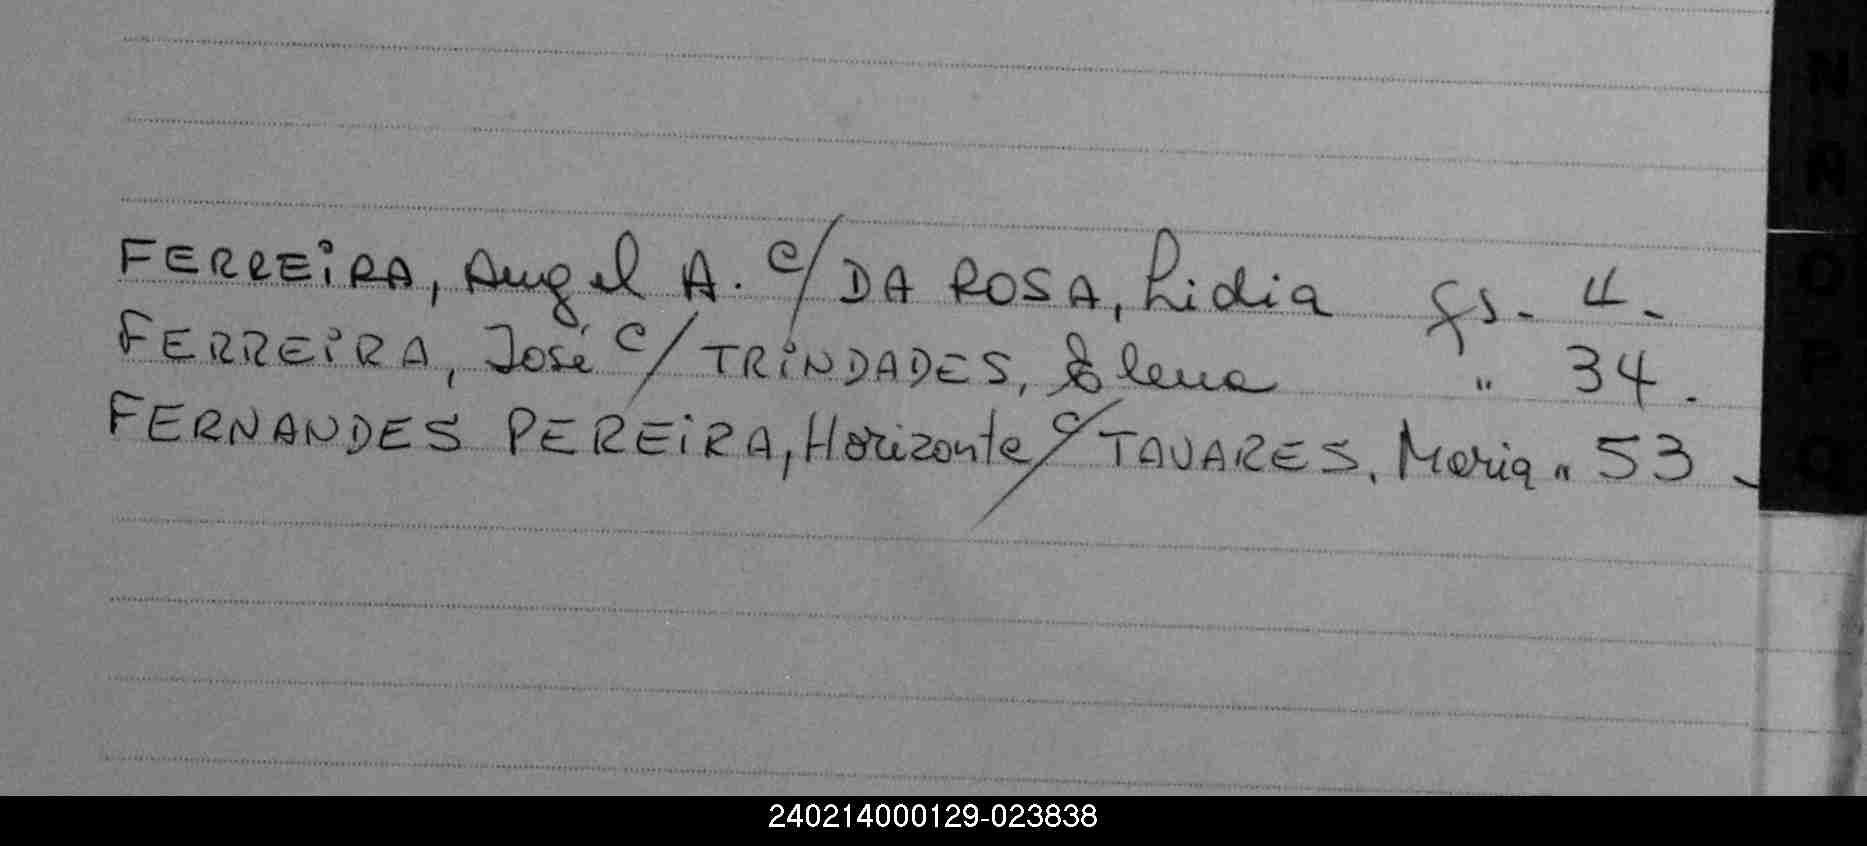 N
N
O
P
Q
FERREIRA, Angel A. c/ DA ROSA, Lidia fs. 4.
FERREIRA, José c/ TRINDADES, Elena " 34.
FERNANDES PEREIRA, Horizonte c/ TAVARES, Maria " 53
240214000129-023838